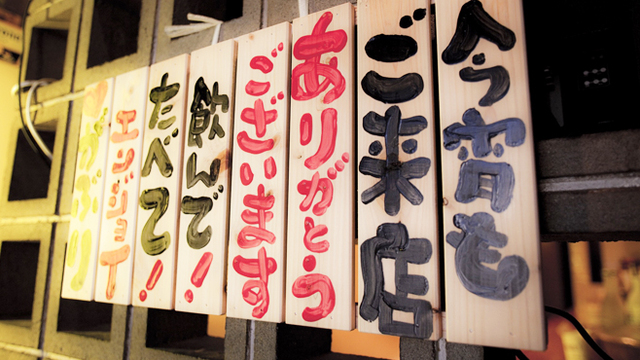 今宵も
ご来店
ありがとう
ございます
飲んで!
たべて!
エンジョイ